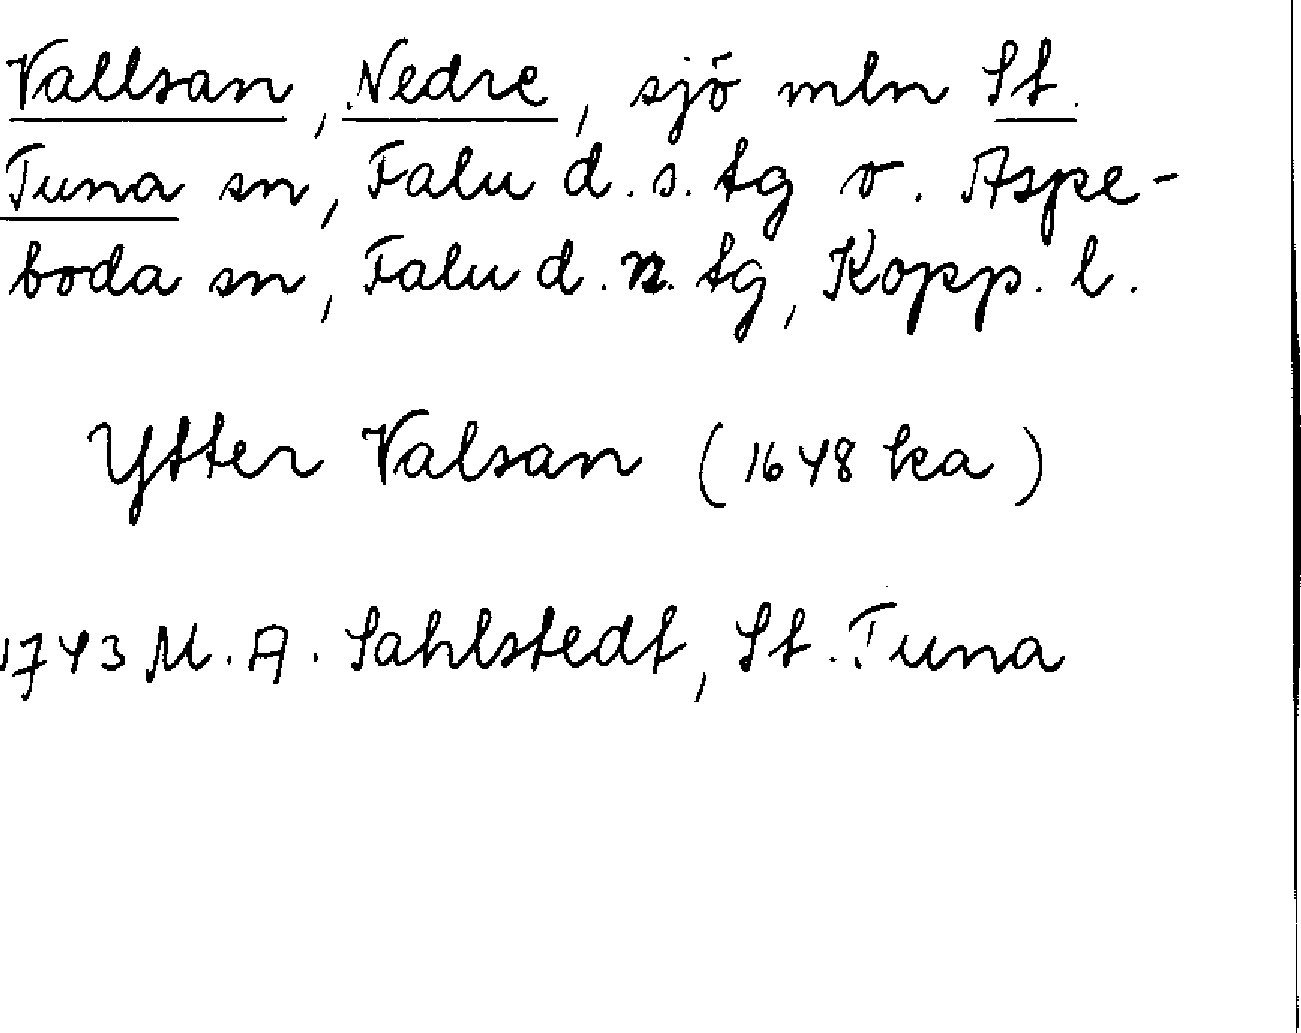 Vallsan, Nedre, sjö mln St.
Tuna sn, Falu d. s. tg o. Aspe-
boda sn, Falu d. n. tg, Kopp. l.
Ytter Valsan (1648 ka)
1743 M. A. Sahlstedt, St. Tuna